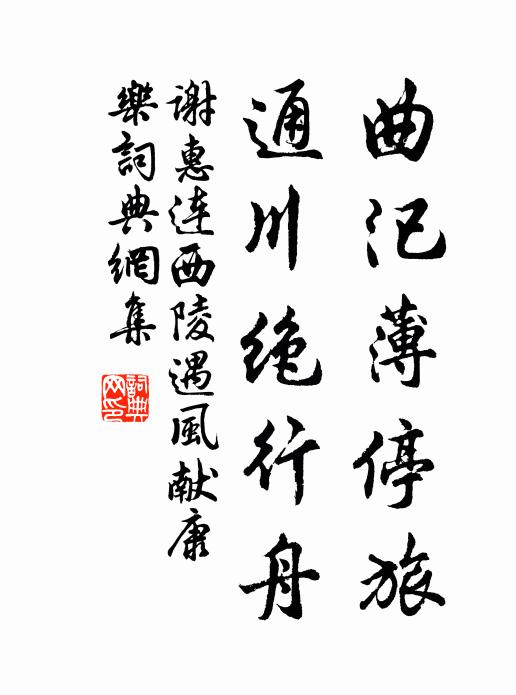 曲汜薄停旅
通川绝行舟
谢惠连西陵遇風献康
樂詞典網集
詞典
网印